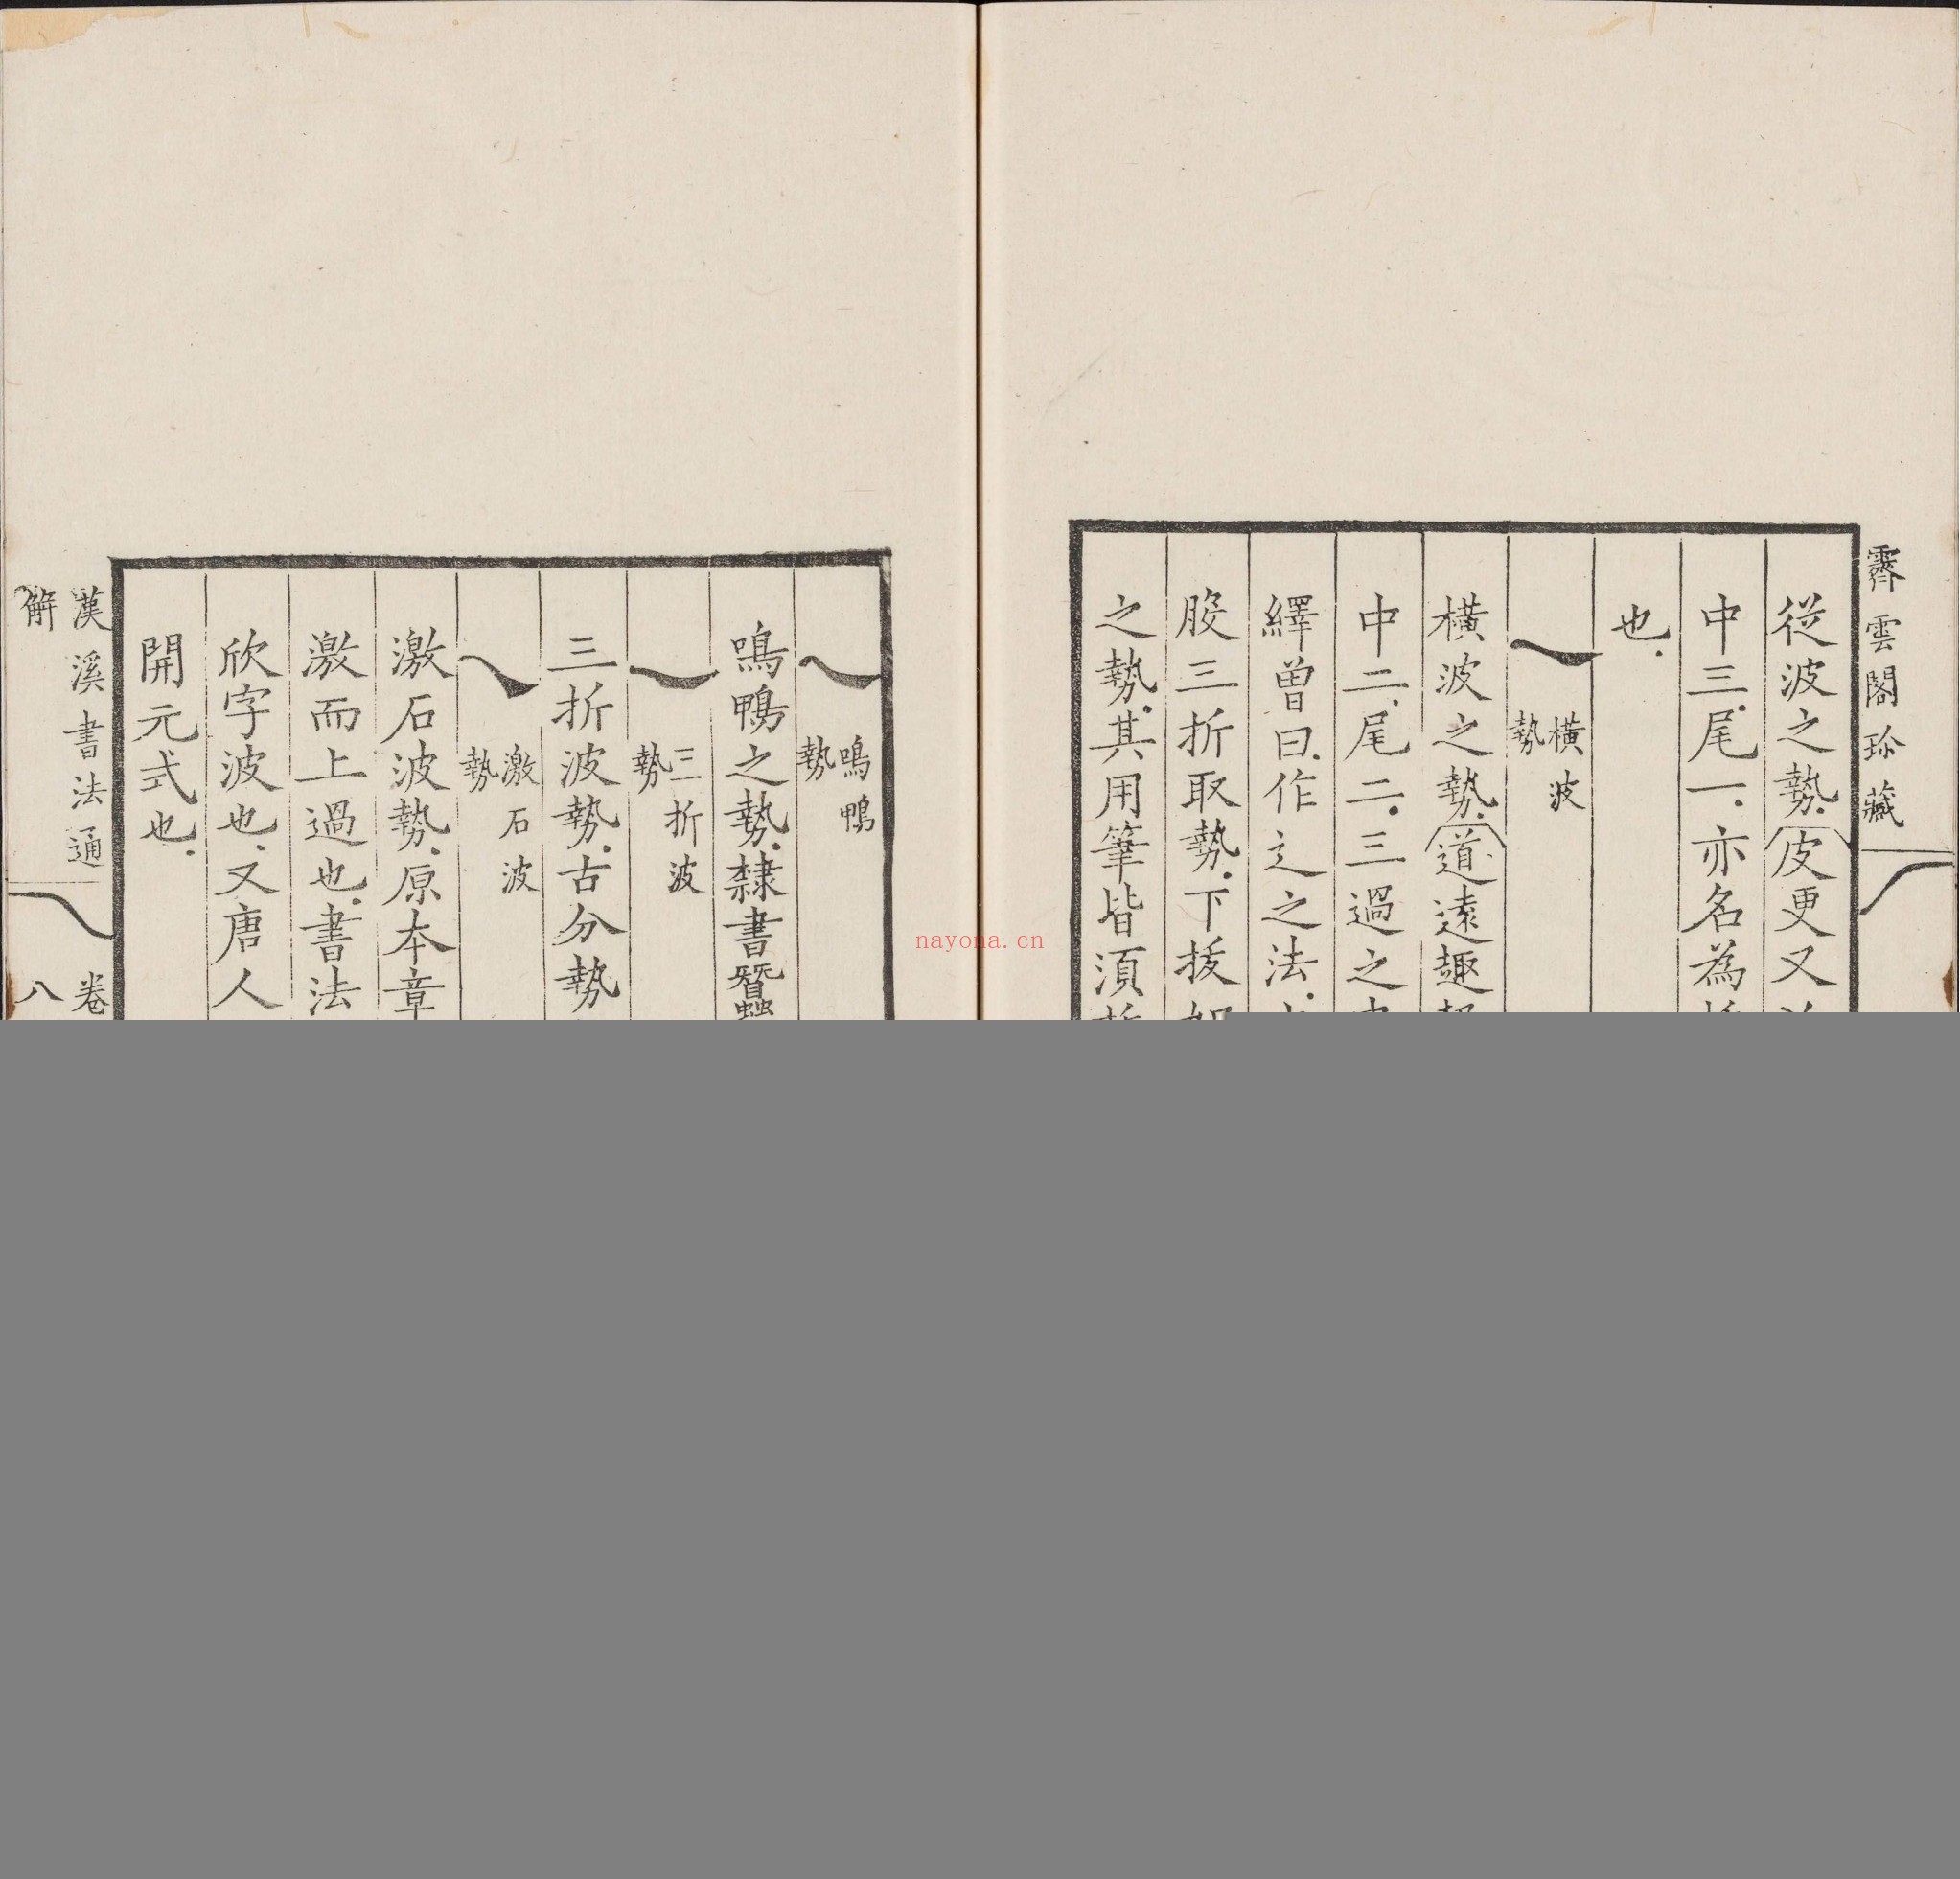 霽雲閣珍藏
從波之勢.皮更又
中三.尾一.亦名為
也.
橫波
勢
橫波之勢.道遠趣
中二.尾二.三過之
繹曾曰.作辶之法.
股三折取勢.下捩
之勢.其用筆皆須
鳴鴨
勢
鳴鴨之勢.隸書蠶
三折波
勢
三折波勢.古分勢
激石波
勢
激石波勢.原本章
激而上過也.書法
欣字波也.又唐人
開元式也.
漢溪書法通
解
卷
八
nayona.cn